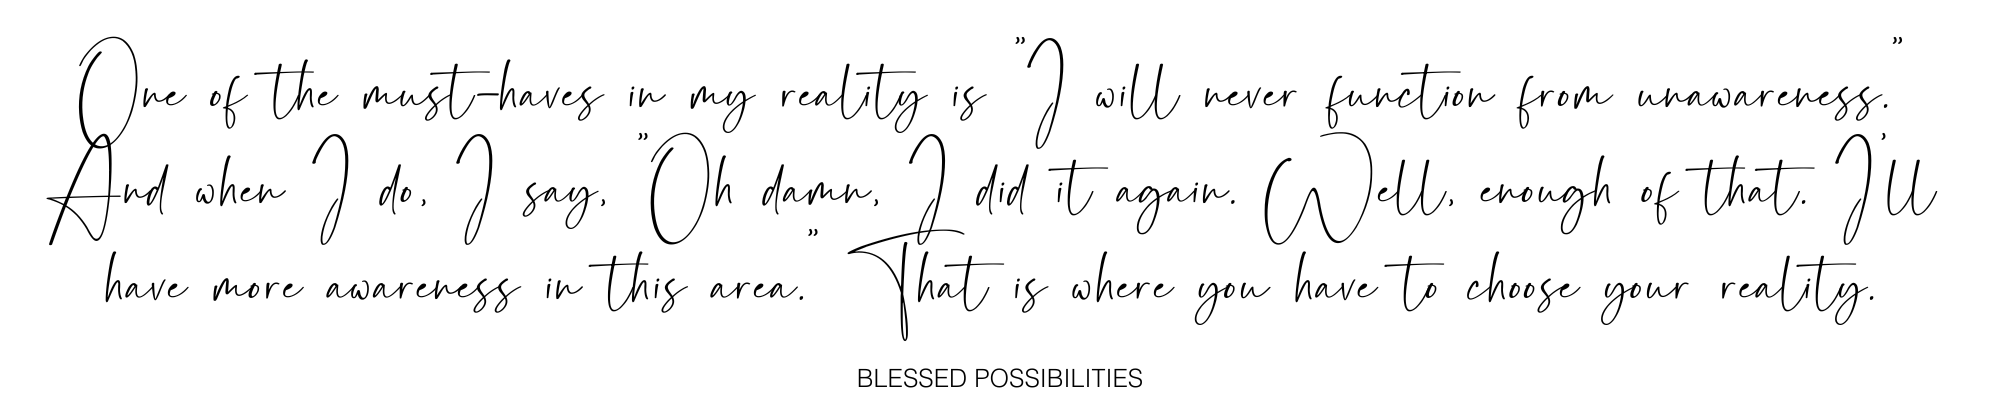 One of the must-haves in my reality is "I will never function from unawareness."
And when I do, I say, "Oh damn, I did it again. Well, enough of that. I'll
have more awareness in this area." That is where you have to choose your reality.
BLESSED POSSIBILITIES